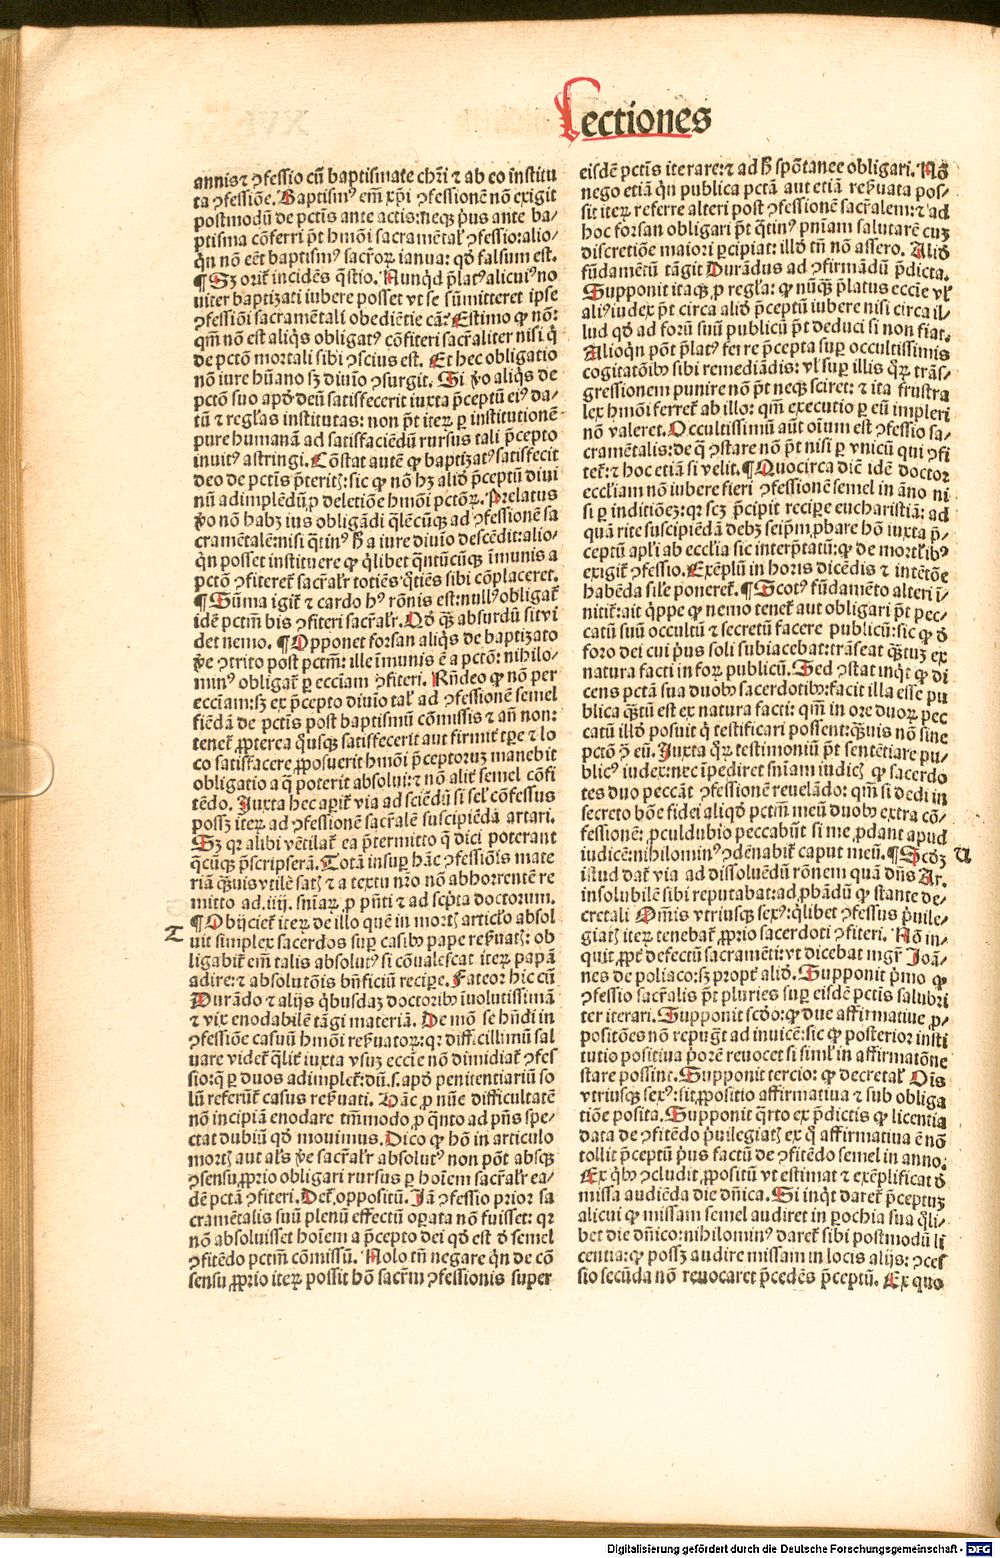 Lectiones
annis ⁊ ꝯfessio cū baptismate chr̄i ⁊ ab eo institu
ta ꝯfessiōe. Baptismꝰ em̄ xp̄i ꝯfessionē nō exigit
postmodū de pctīs ante actis: neqꝫ p̄us ante ba-
ptisma cōferri p̄t hmōi sacramētal̓ ꝯfessio: alio/
q̄n nō eēt baptismꝰ sacr̄oꝝ ianua: qđ falsum est.
¶ Sꝫ orit̄ incidēs q̄stio. Nunqđ p̄latꝰ alicuiꝰ no
uiter baptizati iubere posset vt se sūmitteret ipse
ꝯfessiōi sacramētali obediētie cā: Estimo ꝙ nō:
qm̄ nō est aliq̄s obligatꝰ cōfiteri sacr̄aliter nisi q̄
de pctō mortali sibi ꝯscius est. Et hec obligatio
nō iure hūano sꝫ diuīo ꝯsurgit. Si ꝟo aliq̄s de
pctō suo apđ deū satisfecerit iuxta p̄ceptū eiꝰ da/
tū ⁊ regl̓as institutas: non p̄t iteꝝ ꝑ institutionē
pure humanā ad satisfaciēdū rursus tali p̄cepto
inuitꝰ astringi. Cōstat autē ꝙ baptizatꝰ satisfecit
deo de pctīs p̄teritꝭ: sic ꝙ nō hꝫ aliđ p̄ceptū diui
nū adimplēdū ꝓ deletiōe hmōi pctōꝝ. Prelatus
ꝟo nō habꝫ ius obligādi q̄lēcūqꝫ ad ꝯfessionē sa
cramētalē: nisi q̄tinꝰ h̄ a iure diuīo descēdit: alio/
q̄n posset instituere ꝙ q̄libet q̄ntūcūqꝫ īmunis a
pctō ꝯfiteret̄ sacr̄alr̄ totiēs q̄tiēs sibi cōplaceret.
¶ Sūma igit̄ ⁊ cardo hꝰ rōnis est: nullꝰ obligat̄
idē pctm̄ bis ꝯfiteri sacr̄alr̄. Qđ q̄ꝫ absurdū sit vi
det nemo. ¶ Opponet forsan aliq̄s de baptizato
ꝟe ꝯtrito post pctm̄: ille īmunis ē a pctō: nihilo-
minꝰ obligat̄ ꝑ ecciam ꝯfiteri. Rn̄deo ꝙ nō per
ecciam: sꝫ ex p̄cepto diuīo tal̓ ad ꝯfessionē semel
fiēdā de pctīs post baptismū cōmissis ⁊ añ non:
tenet̄ ꝓpterea q̄usqꝫ satisfecerit aut firmit̄ tꝑe ⁊ lo
co satisfacere ꝓposuerit hmōi p̄ceptoruꝫ manebit
obligatio a q̄ poterit absolui: ⁊ nō alit̄ semel cōfi
tēdo. Iuxta hec aperit̄ via ad sciēdū si sel̓ cōfessus
possꝫ iteꝝ ad ꝯfessionē sacr̄alē suscipiēdā artari.
Sꝫ qr alibi vētilat̄ ea p̄termitto q̄ dici poterant
q̄cūqꝫ p̄scripserā. Totā insuꝑ hāc ꝯfessiōīs mate
riā q̄ꝫuis vtilē satꝭ ⁊ a textu nr̄o nō abhorrentē re
mitto ad .iiij. sniaꝝ ꝓ pn̄ti ⁊ ad scp̄ta doctorum.
T
¶ Obijciet̄ iteꝝ de illo quē in mortꝭ articl̓o absol
uit simplex sacerdos suꝑ casibꝰ pape reẜuatꝭ: ob
ligabit̄ em̄ talis absolutꝰ si cōualescat iteꝝ papā
adire: ⁊ absolutōis bn̄ficiū reciꝑe. Fateor hic cū
Durādo ⁊ alijs q̄busdaꝫ doctoribꝰ īuolutissimā
⁊ vix enodabilē tāgi materiā. De mō se hn̄di in
ꝯfessiōe casuū hmōi reẜuatoꝝ: qr difficillimū sal
uare videt̄ q̄lit̄ iuxta vsuꝫ eccie nō dimidiat̄ ꝯfes
sio: q̄ ꝑ duos adimplet̄: dū .s. apđ penitentiariū so
lū referūt̄ casus reẜuati. Hāc ꝓ nūc difficultatē
nō incipiā enodare tm̄modo ꝓ q̄nto ad pn̄s spe-
ctat dubiū qđ mouimus. Dico ꝙ hō in articulo
mortꝭ aut als̄ ꝟe sacr̄alr̄ absolutꝰ non pōt absqꝫ
ꝯsensu ꝓprio obligari rursus ꝑ hoīem sacr̄alr̄ ea-
dē pctā ꝯfiteri. Det̄ oppositū. Iā ꝯfessio prior sa
cramētalis suū plenū effectū oꝑata nō fuisset: qr
nō absoluisset hoīem a p̄cepto dei qđ est đ semel
ꝯfitēdo pctm̄ cōmissū. Nolo tn̄ negare q̄n de cō
sensu ꝓprio iteꝝ possit hō sacr̄m ꝯfessionis super
eisdē pctīs iterare: ⁊ ad h̄ spōtanee obligari. Nō
nego etiā q̄n publica pctā aut etiā reẜuata pos/
sit iteꝝ referre alteri post ꝯfessionē sacr̄alem: ⁊ ad
hoc forsan obligari p̄t q̄tinꝰ pn̄iam salutarē cuꝫ
discretiōe maiori ꝑcipiat: illđ tn̄ nō assero. Aliđ
fūdamētū tāgit Durādus ad ꝯfirmādū p̄dicta.
Supponit itaqꝫ ꝓ regl̓a: ꝙ nūq̄ꝫ p̄latus eccie vl̓
aliꝰ iudex p̄t circa aliđ p̄ceptū iubere nisi circa il/
lud qđ ad forū suū publicū p̄t deduci si non fiat.
Alioq̄n pōt p̄latꝰ ferre p̄cepta suꝑ occultissimis
cogitatōibꝰ sibi remediādis: vl̓ suꝑ illis q̄ꝝ trās/
gressionem punire nō p̄t neqꝫ sciret: ⁊ ita frustra
lex hmōi ferret̄ ab illo: qm̄ executio ꝑ eū impleri
nō valeret. Occultissimū aūt oīum est ꝯfessio sa/
cramētalis: de q̄ ꝯstare nō p̄t nisi ꝑ vnicū qui ꝯfi
tet̄: ⁊ hoc etiā si velit. ¶ Quocirca diē idē doctor
eccl̓iam nō iubere fieri ꝯfessionē semel in āno ni
si ꝑ inditiōeꝫ: qr scꝫ p̄cipit reciꝑe eucharistiā: ad
quā rite suscipiēdā debꝫ seip̄m ꝓbare hō iuxta p̄-
ceptū apl̓i ab eccl̓ia sic interp̄tatū: ꝙ de mortl̓ibꝰ
exigit̄ ꝯfessio. Exēplū in horis dicēdis ⁊ intētōe
habēda sil̓e poneret̄. ¶ Scotꝰ fūdamēto alteri ī-
nitit̄: ait q̄ppe ꝙ nemo tenet̄ aut obligari p̄t pec-
catū suū occultū ⁊ secretū facere publicū: sic ꝙ đ
foro dei cui p̄us soli subiacebat: trāseat q̄ꝫtuꝫ ex
natura facti in foꝝ publicū. Sed ꝯstat inq̄t ꝙ di
cens pctā sua duobꝰ sacerdotibꝰ: facit illa esse pu
blica q̄ꝫtū est ex natura facti: qm̄ in ore duoꝝ pec
catū illđ posuit q̄ testificari possent: q̄ꝫuis nō sine
pctō ꝯ eū. Iuxta q̄ꝝ testimoniū p̄t sentētiare pu/
blicꝰ iudex: nec īpediret sniam iudicꝭ ꝙ sacerdo
tes duo peccāt ꝯfessionē reuelādo: qm̄ si dedi in
secreto bōe fidei aliqđ pctm̄ meū duobꝰ extra cō/
fessionē: ꝓculdubio peccabūt si me ꝓdant apud
iudicē: nihilominꝰ ꝯdēnabit̄ caput meū. ¶ Scđꝫ
U
istud dat̄ via ad dissoluēdū rōnem quā dn̄s Ar.
insolubilē sibi reputabat: ad ꝓbādū ꝙ stante de/
cretali Omīs vtriusqꝫ sexꝰ: q̄libet ꝯfessus p̄uile-
giatꝭ iteꝝ tenebat̄ ꝓprio sacerdoti ꝯfiteri. Nō in/
quit ꝓpt̄ defectū sacramēti: vt dicebat mgr̄ Joā/
nes de poliaco: sꝫ propt̄ aliđ. Supponit p̄mo ꝙ
ꝯfessio sacr̄alis p̄t pluries suꝑ eisdē pctīs salubri
ter iterari. Supponit scđo: ꝙ due affirmatiue ꝓ/
positōes nō repugt̄ ad inuicē: sic ꝙ posterior insti
tutio positiua p̄orē reuocet si siml̓ in affirmatōne
stare possint. Supponit tercio: ꝙ decretal̓ Oīs
vtriusqꝫ sexꝰ: sit ꝓpositio affirmatiua ⁊ sub obliga
tiōe posita. Supponit q̄rto ex p̄dictis ꝙ licentia
data de ꝯfitēdo p̄uilegiatꝭ ex q̄ affirmatiua ē nō
tollit p̄ceptū p̄us factū de ꝯfitēdo semel in anno.
Ex q̄bꝰ ꝯcludit ꝓpositū vt estimat ⁊ exēplificat đ
missa audiēda die dn̄ica. Si inq̄t daret̄ p̄ceptuꝫ
alicui ꝙ missam semel audiret in ꝑochia sua q̄li/
bet die dn̄ico: nihilominꝰ daret̄ sibi postmodū li
centia: ꝙ possꝫ audire missam in locis alijs: ꝯces
sio secūda nō reuocaret p̄cedēs p̄ceptū. Ex quo
Digitalisierung gefördert durch die Deutsche Forschungsgemeinschaft - DFG